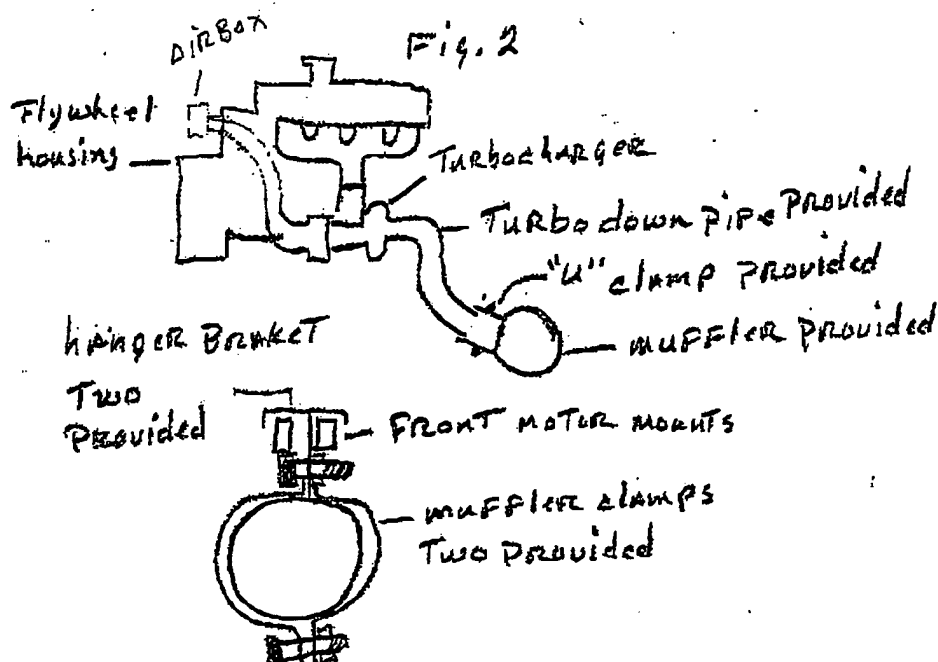 Fig. 2
AIRBOX
Flywheel
housing
TURBOCHARGER
TURBO down PIPE PROVIDED
"U" clamp PROVIDED
muffler PROVIDED
hANGER BRAKET
TWO
PROVIDED
FRONT MOTOR MOUNTS
muffler clamps
TWO PROVIDED